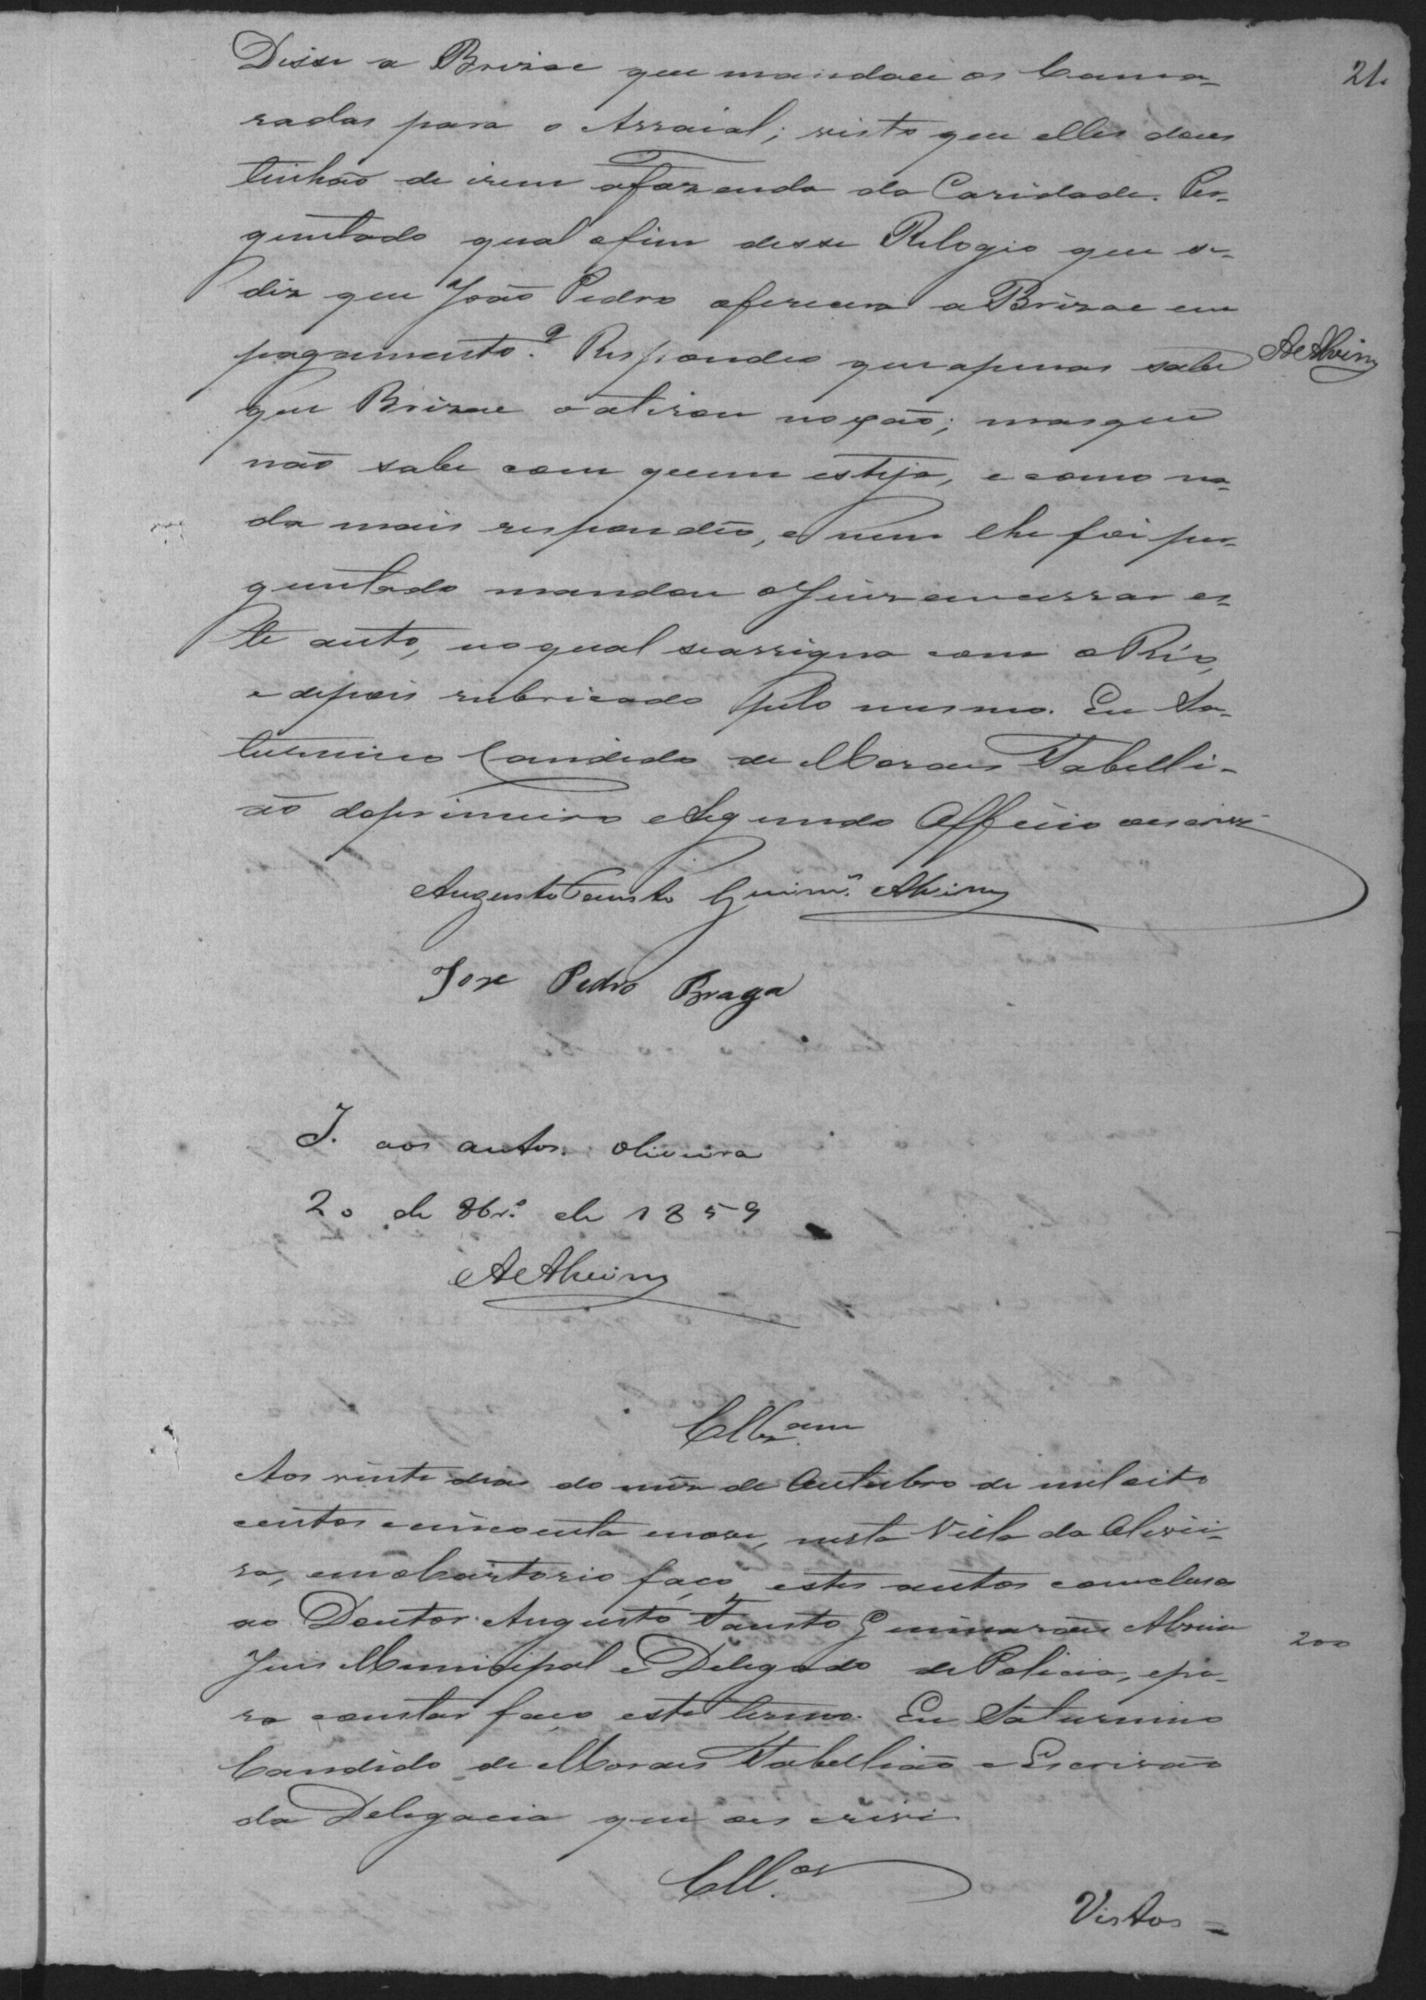 21.
Disse a Brizae que mandaci os Cama-
radas para o Arraial; visto que elles dous
tinhão de irem afazenda da Caridade. Per-
guntado qual ofim desse Relogio que se
diz que João Pedro oferecera a Brizae em
pagamento? Respondeo que apenas sabe
AeAlvim
que Brizae o atirou no xão; mas que
não sabe com quem esteja, e como na-
da mais respondêo, e nem lhe foi per-
guntado mandou o Juiz encerrar es-
te auto, no qual se assigna com o Réo,
e depois rubricado pelo mesmo. Eu Sa-
turnino Candido de Moraes Tabelli-
ão do primeiro e Segundo Officio o escrevi
Augusto Fausto Guimes. Alvim
Jose Pedro Braga
J. aos autos. Oliveira
20 de 8br.o de 1859
AeAlvim
Cllzam
Aos vinte dias do mêz de Outubro de mil oito
centos cincoenta enove, nesta Villa da Olivei-
ra, em o Cartorio faço estes autos concluso
ao Doutor Augusto Fausto Guimarães Alvim
Juis Municipal e Delegado de Policia, epa-
200
ra constar faço este termo. Eu Saturnino
Candido de Moraes Tabellião e Escrivão
da Delegacia que o escrevi
Cll.os
Vistos =